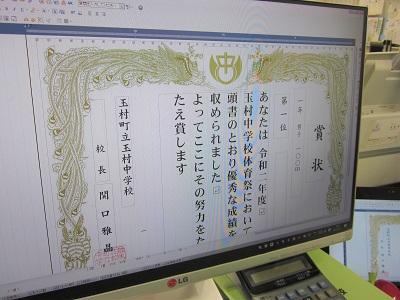 賞状
一年 男子 一〇〇m
第一位
あなたは 令和二年度
玉村中学校体育祭において
頭書のとおり優秀な成績を
収められました
よってここにその努力をた
たえ賞します
玉村町立玉村中学校
校長 関口雅晶
中
LG